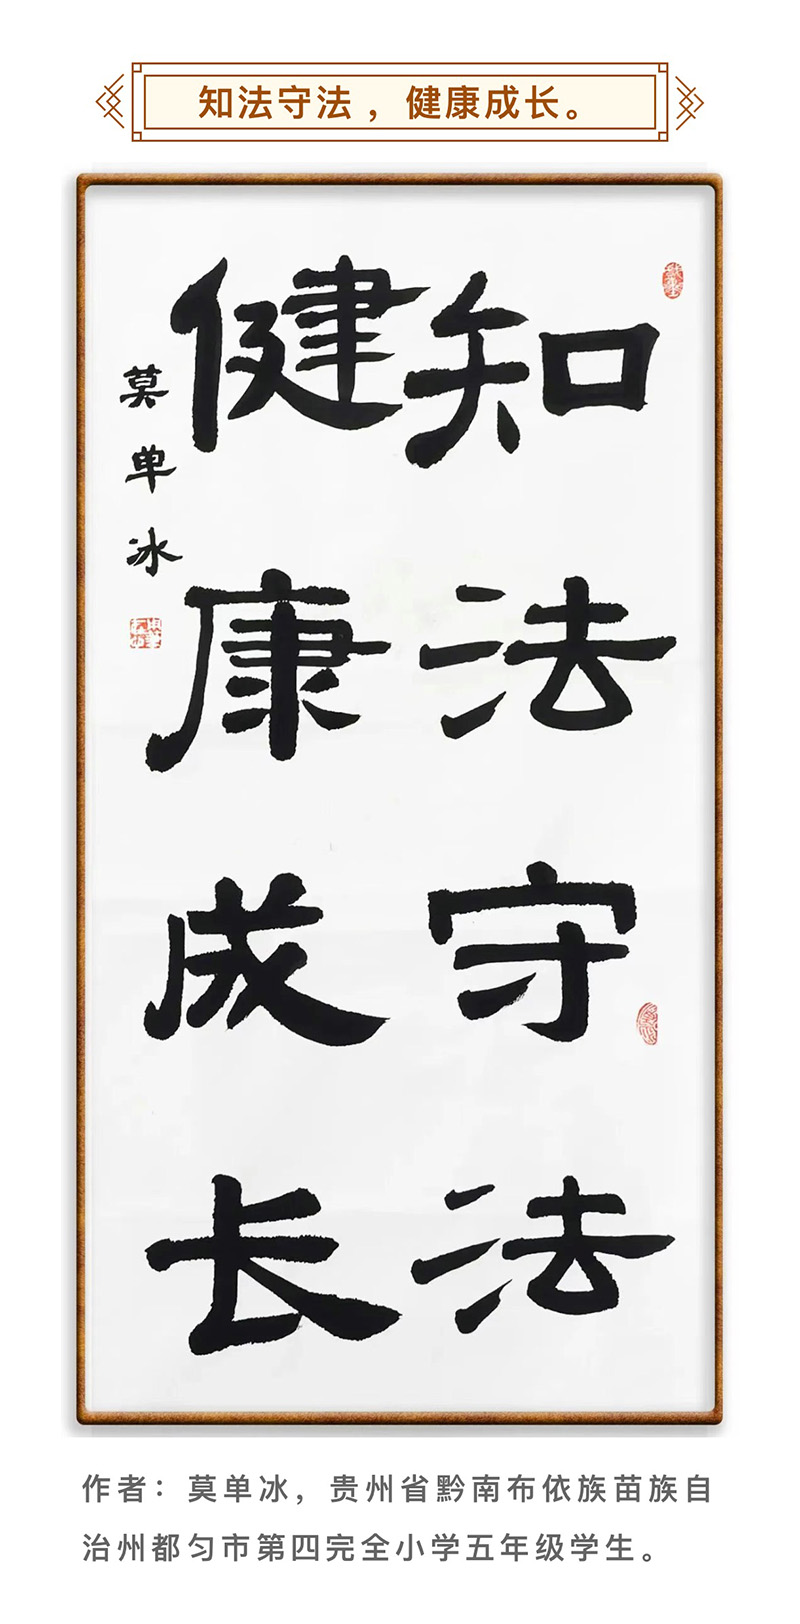 知法守法，健康成长。
知法守法
健康成长
莫单冰
作者：莫单冰，贵州省黔南布依族苗族自
治州都匀市第四完全小学五年级学生。